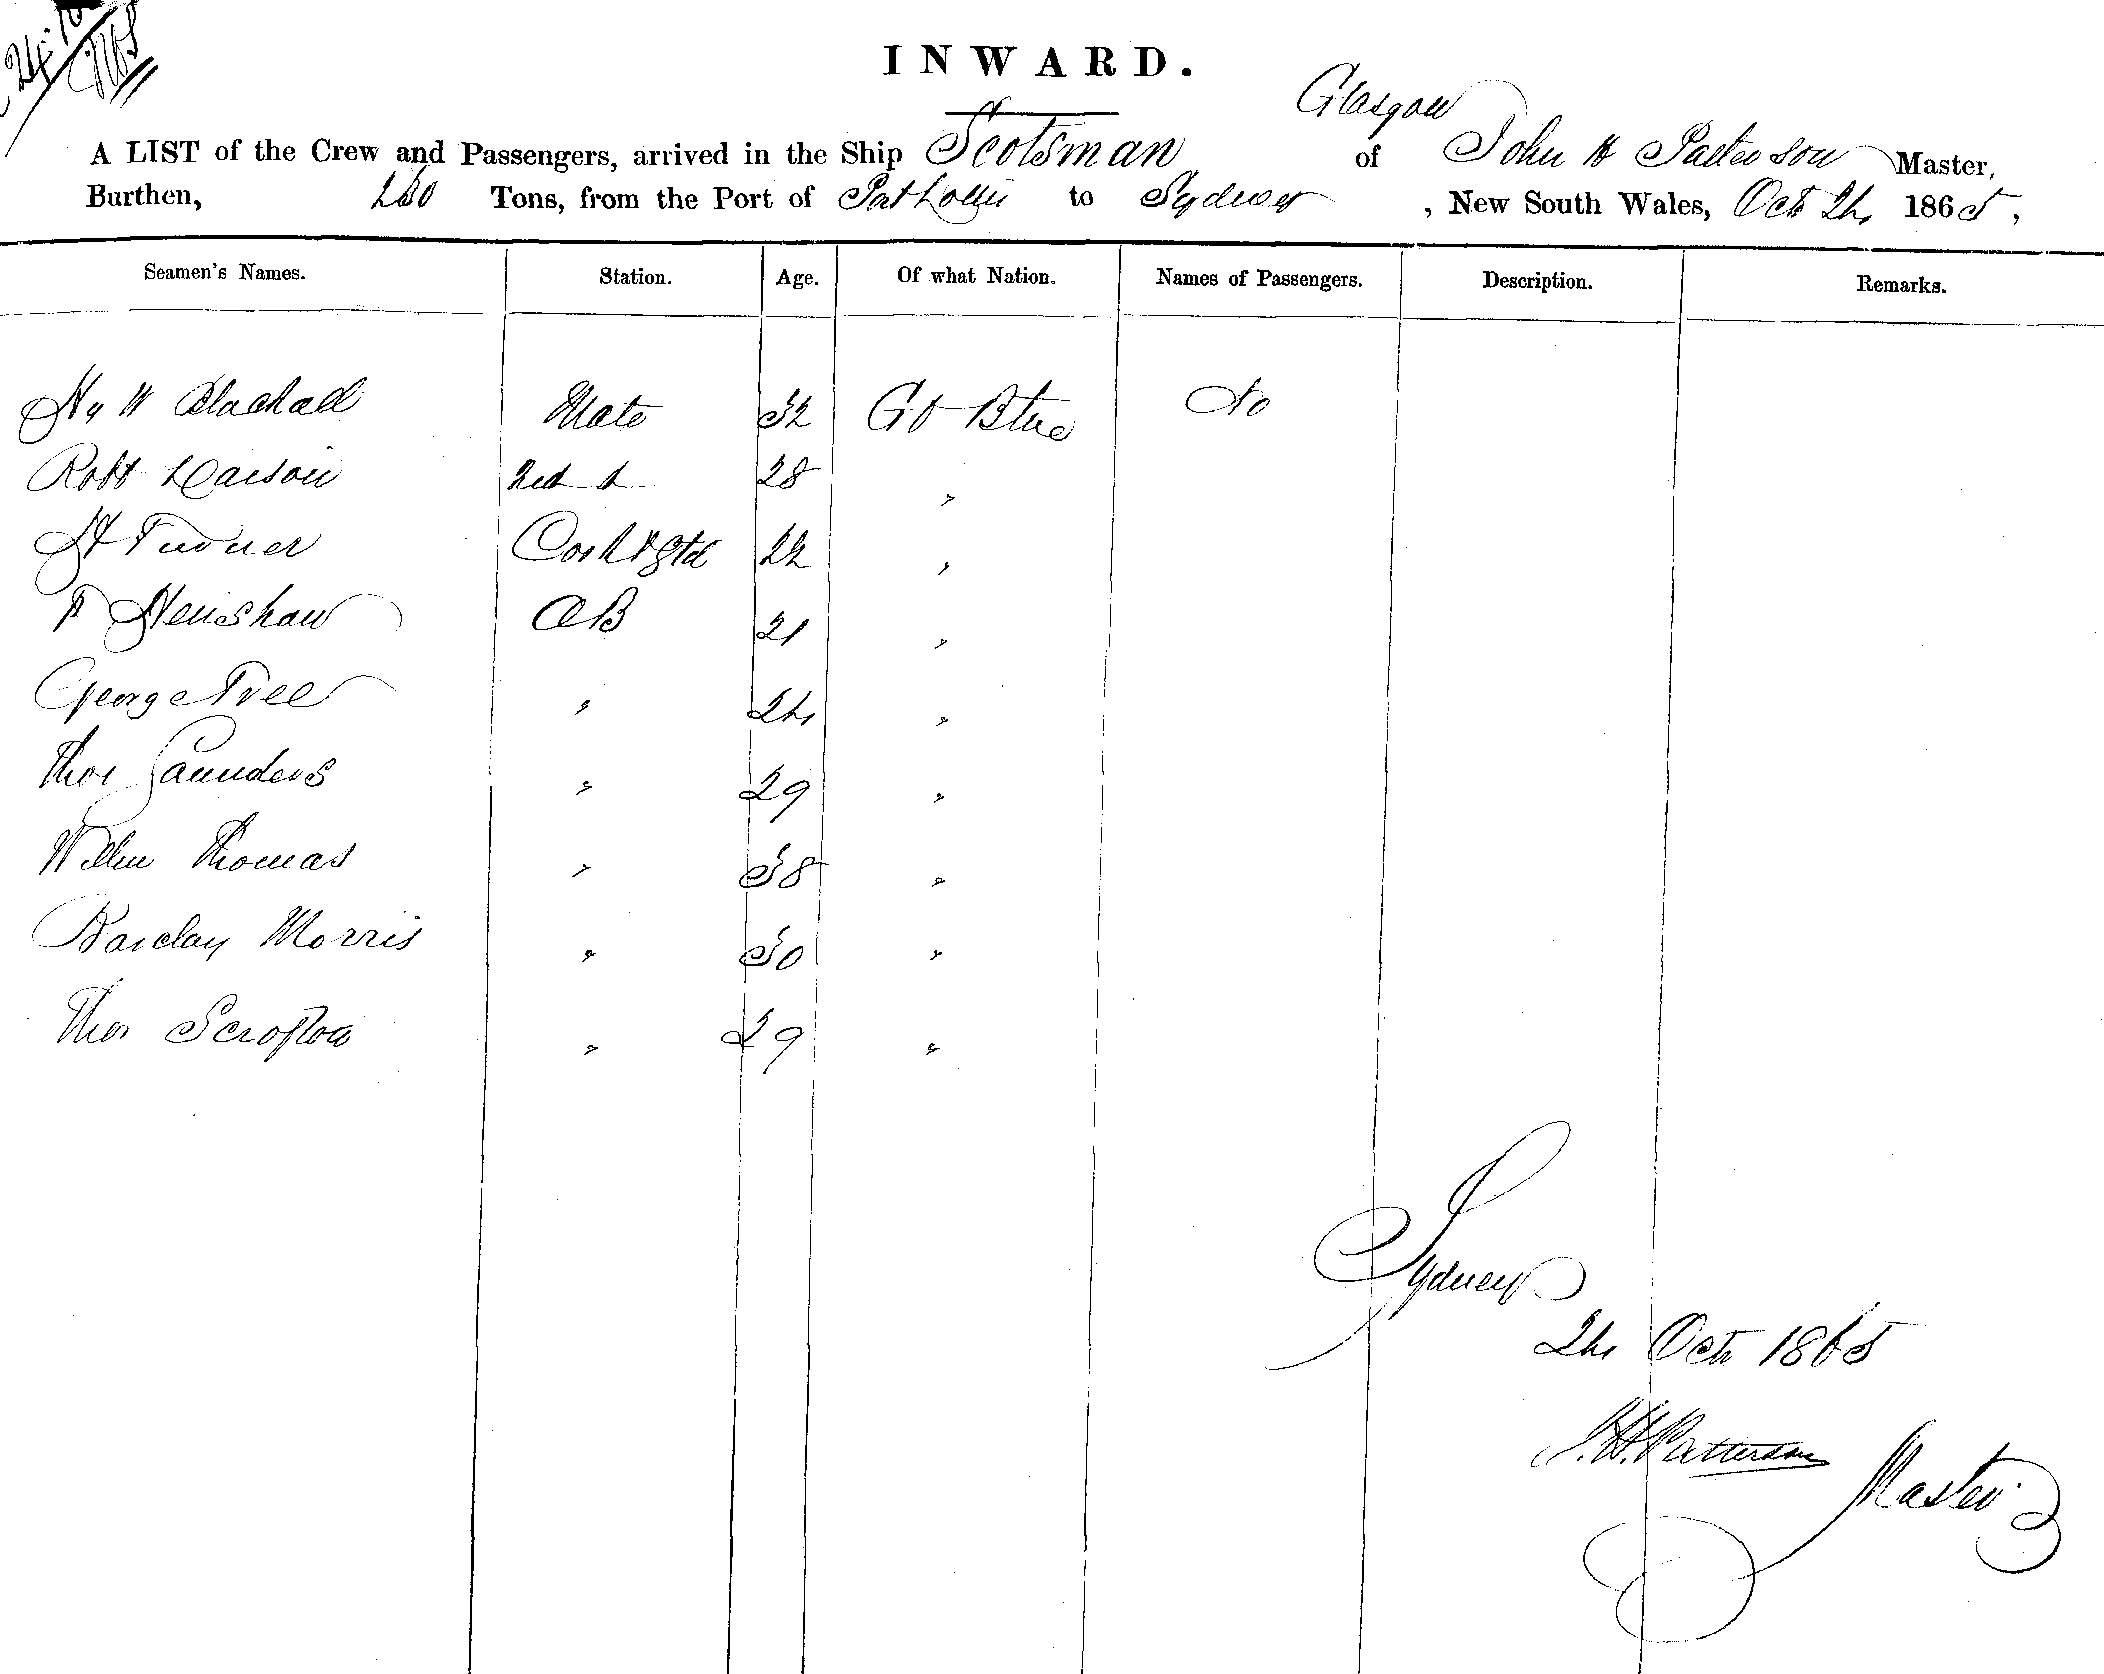 24.10
INWARD.
Glasgow
A LIST of the Crew and Passengers, arrived in the Ship Scotsman of John H Patterson Master,
Burthen, 260 Tons, from the Port of to Sydney, New South Wales, Oct 24 1865,
Seamen's Names. Station. Age. Of what Nation. Names of Passengers. Description. Remarks.
Hy W Blackall Mate 32 Gt Btn No
Robt 28 "
H Turner Cook & Std 22 "
Henshaw AB 21 "
George Tree " 24 "
Thos Saunders " 29 "
Willm Thomas " 38 "
Barclay Morris " 30 "
Thos " 29 "
Sydney
24 Oct 1865
J.H. Patterson
Master